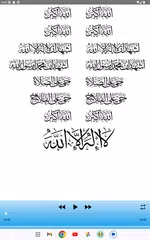 الله أكبر الله أكبر
الله أكبر الله أكبر
أشهد أن لا إله إلا الله أشهد أن لا إله إلا الله
أشهد أن محمدا رسول الله أشهد أن محمدا رسول الله
حي على الصلاة حي على الصلاة
حي على الفلاح حي على الفلاح
الله أكبر الله أكبر
لا إله إلا الله